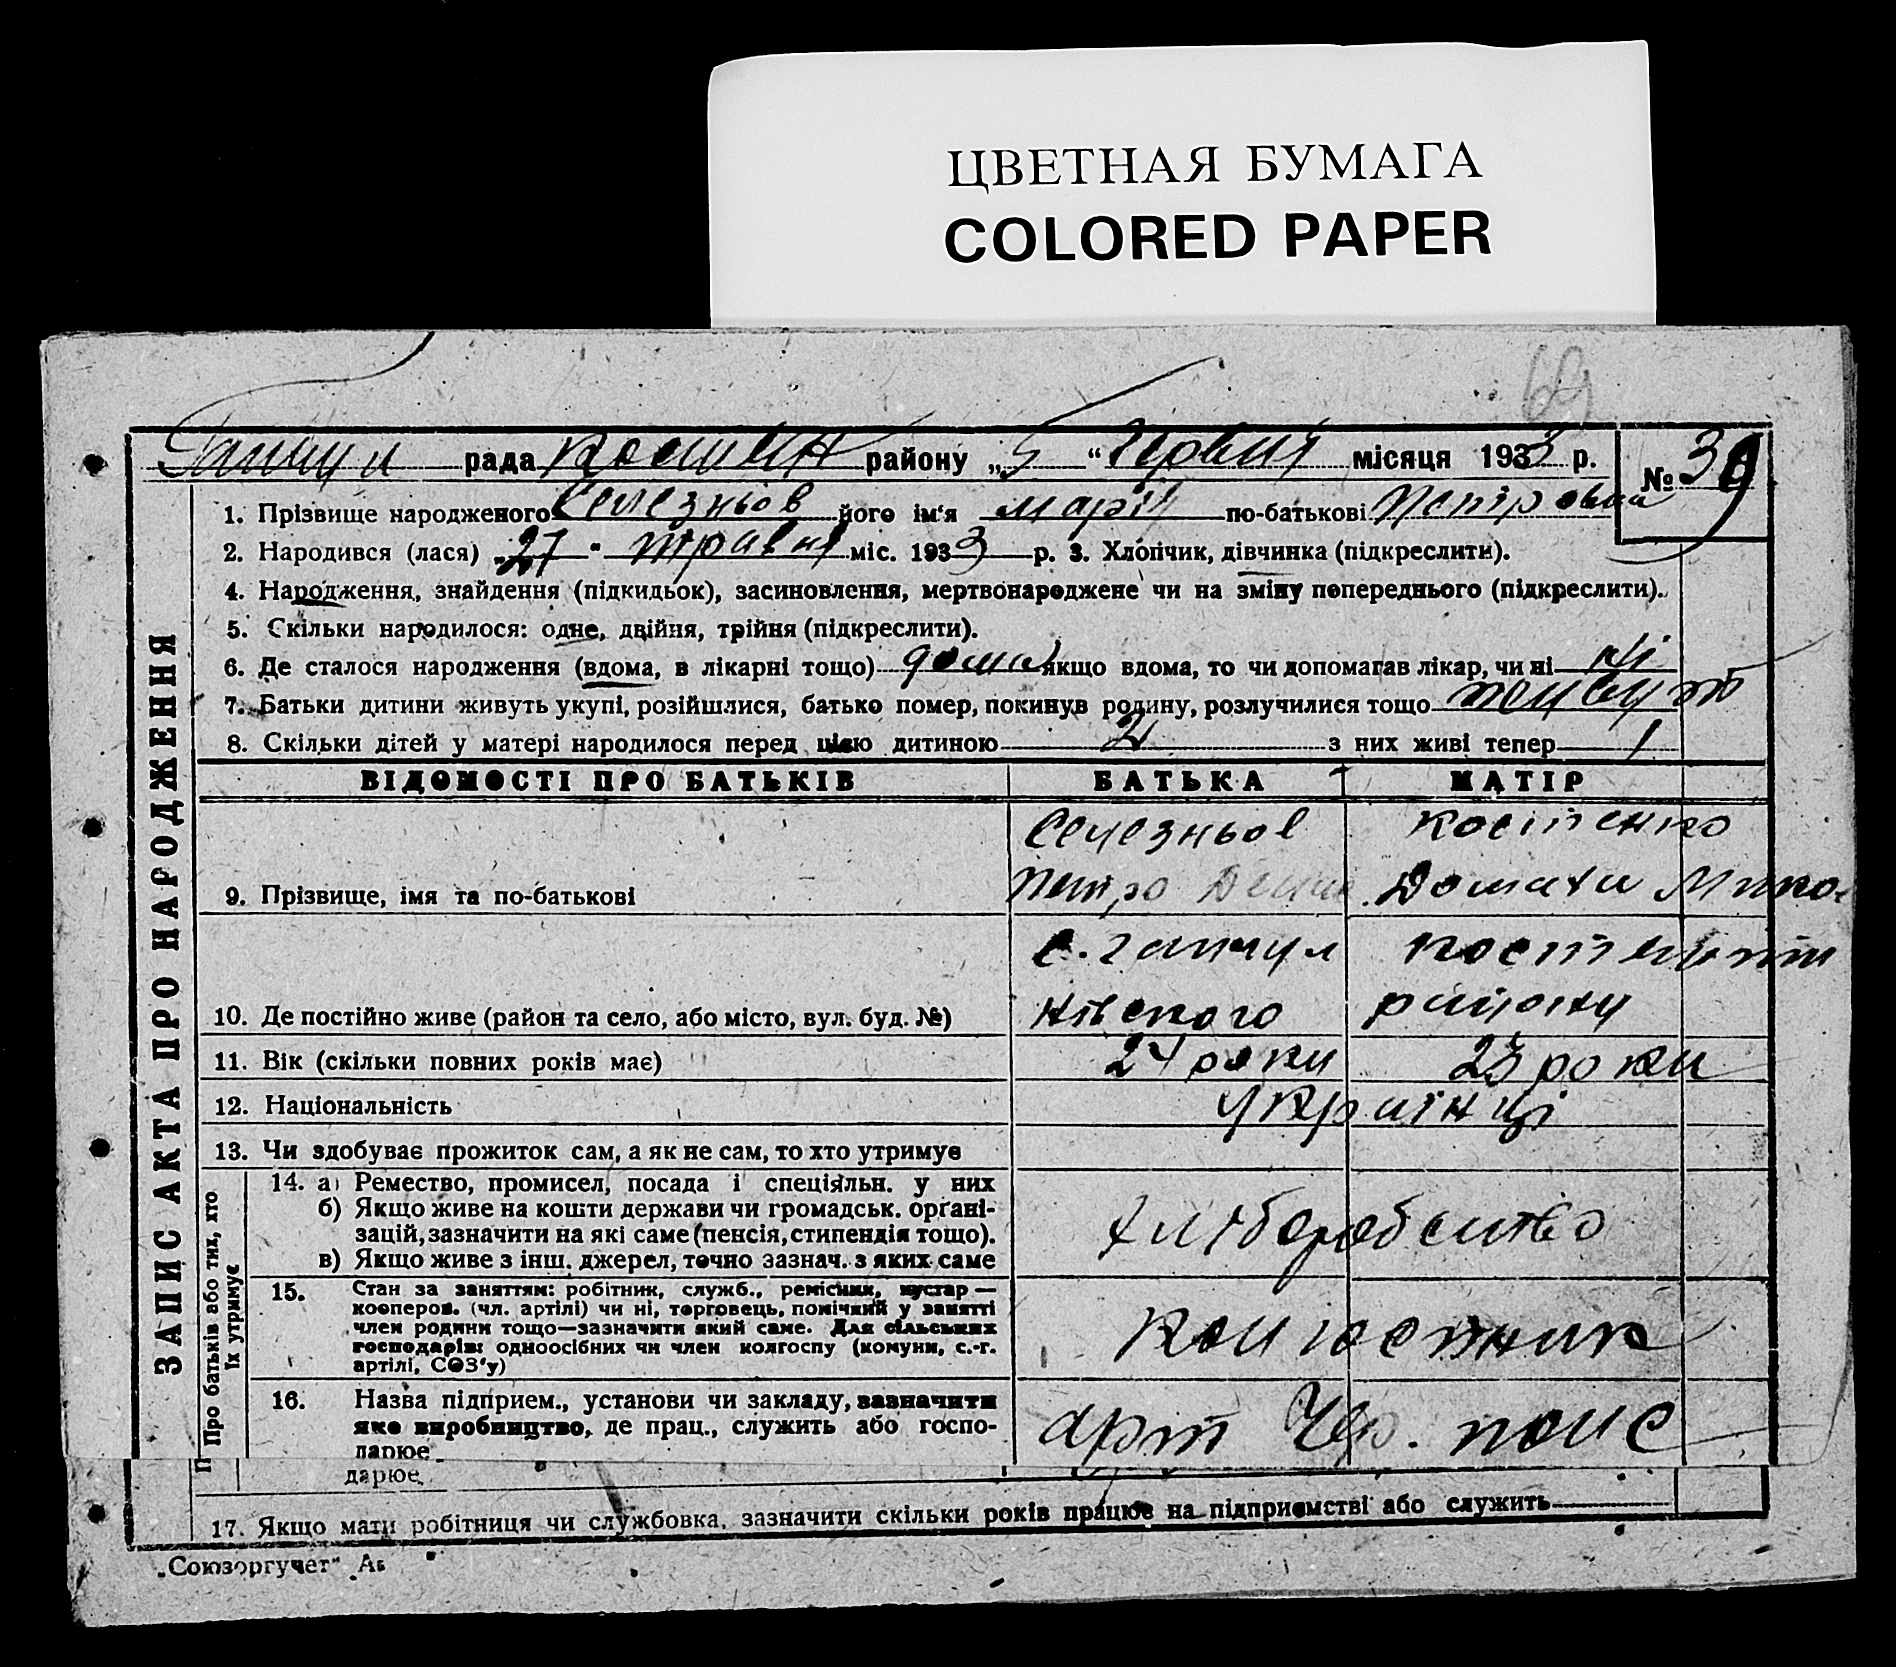 ЦВЕТНАЯ БУМАГА
COLORED PAPER
69
рада районy „5“ Червня місяця 1933 р.
№ 39
ЗАПИС АКТА ПРО НАРОДЖЕННЯ
1. Прізвище народженого Селезньов його ім'я Марія по-батькові Петровна
2. Народився (лася) „27“ травня міс. 1933 р. 3. Хлопчик, дівчинка (підкреслити).
4. Народження, знайдення (підкидьок), засиновлення, мертвонароджене чи на зміну попереднього (підкреслити).
5. Скільки народилося: одне, двійня, трійня (підкреслити).
6. Де сталося народження (вдома, в лікарні тощо) дома якщо вдома, то чи допомагав лікар, чи ні ні
7. Батьки дитини живуть укупі, розійшлися, батько помер, покинув родину, розлучилися тощо живут
8. Скільки дітей у матері народилося перед цією дитиною 2 з них живі тепер 1
ВІДОМОСТІ ПРО БАТЬКІВ БАТЬКА МАТІР
Селезньов Костенко
9. Прізвище, імя та по-батькові Петро Домаха Мико
с. Ганчул Костянтин
10. Де постійно живе (район та село, або місто, вул. буд. №) нівского району
11. Вік (скільки повних років має) 24 роки 23 роки
12. Національність українці
13. Чи здобуває прожиток сам, а як не сам, то хто утримує
Про батьків або тих, хто
їх утримує
14. а) Ремество, промисел, посада і спеціяльн. у них
б) Якщо живе на кошти держави чи громадськ. органі-
зацій, зазначити на які саме (пенсія, стипендія тощо).
в) Якщо живе з інш. джерел, точно зазнач. з яких саме
хліборобство
15. Стан за заняттям: робітник, служб., ремісник, кустар —
кооперов. (чл. артілі) чи ні, торговець, помічний у занятті
член родини тощо—зазначити який саме. Для сільських
господарів: одноосібних чи член колгоспу (комуни, с.-г.
артілі, СОЗ'у)
колгоспник
16. Назва підприєм., установи чи закладу, зазначити
яке виробництво, де прац., служить або госпо-
дарює
арт Чер. полс
дарює
17. Якщо мати робітниця чи службовка, зазначити скільки років працює на підприємстві або служить
„Союзоргучет“